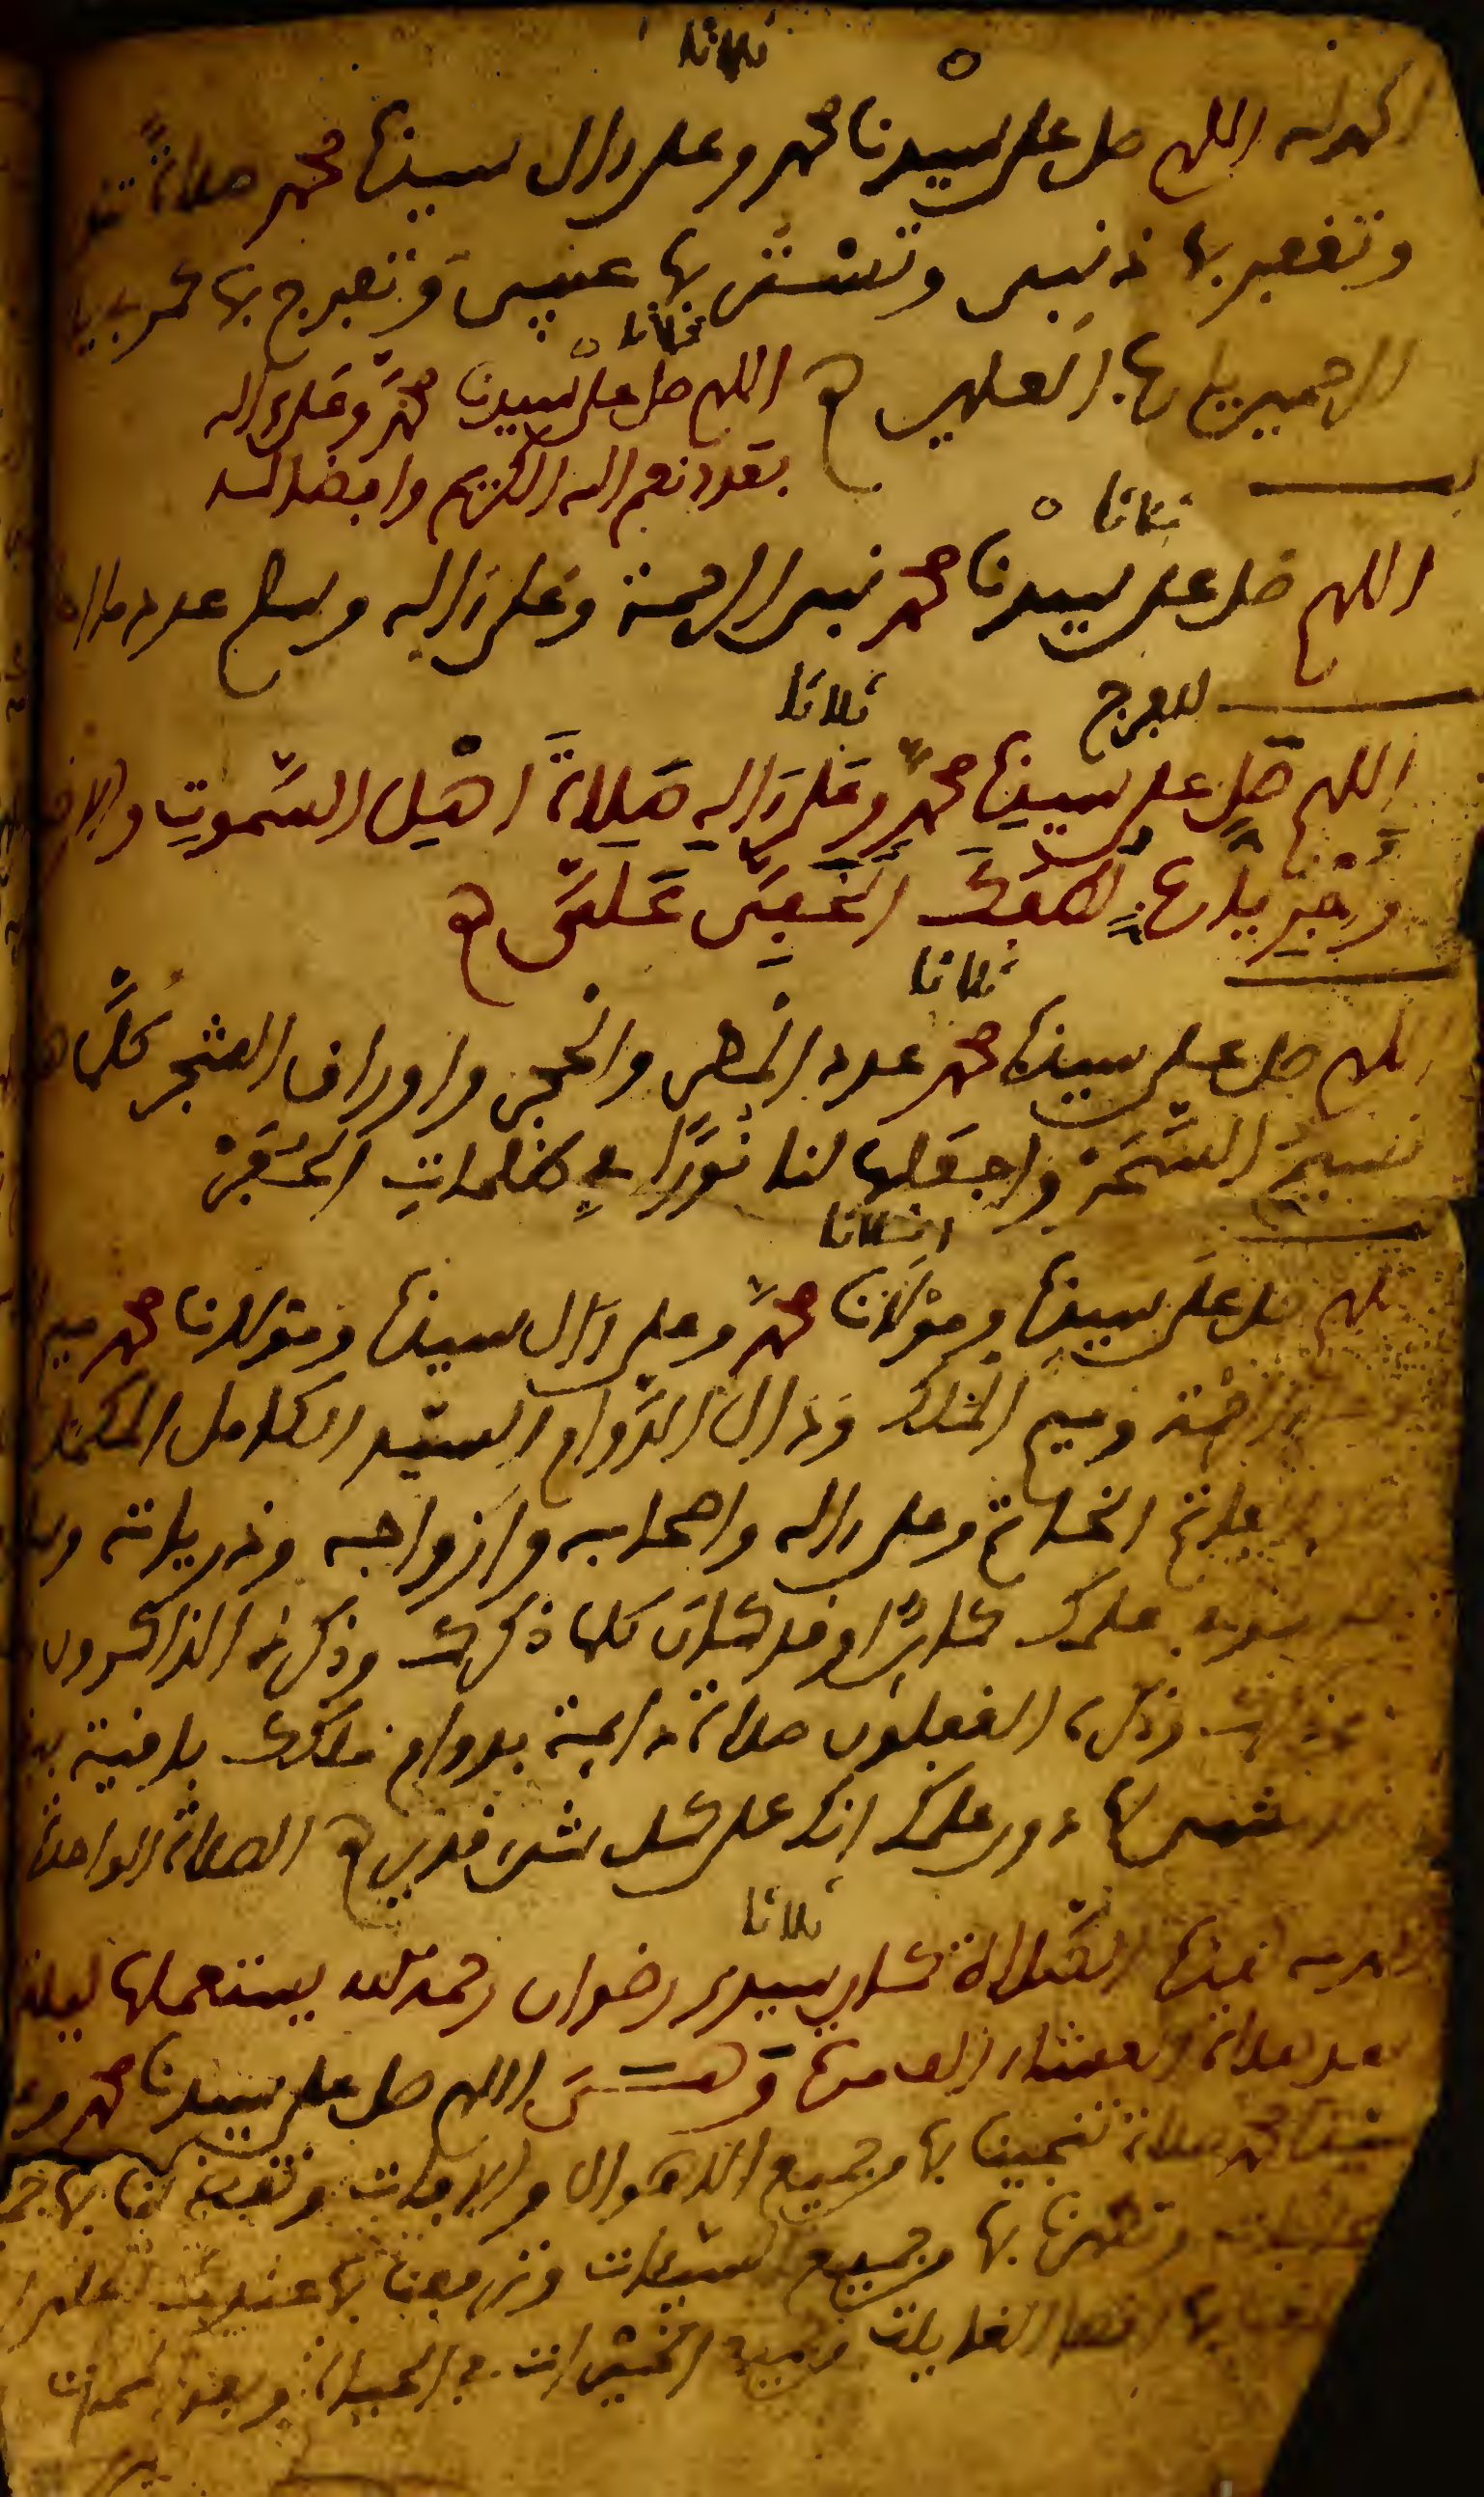 ثلاثا
اللهم صل على سيدنا محمد وعلى ءال سيدنا محمد صلاةً
وتغفر بها ذنبي وتستر بها عيبي وتفرج بها كربي يا
الرحمين يا رب العلمين
ثلاثا
اللهم صل على سيدنا محمد وعلى ءاله
بعدد نعم الله الكريم وافضاله
ثلاثا
اللهم صل على سيدنا محمد نبي الرحمة وعلى ءاله وسلم عدد ما
للفرج ثلاثا
اللهم صل على سيدنا محمد وعلى ءاله صلاة اهل السموت والا
يا رب لطفك الخفي علي
ثلاثا
اللهم صل على سيدنا محمد عدد المطر والحجر واوراق الشجر كلما
نسيم السحر واجعلها لنا نورا في ظلمات الحفر
ثلاثا
اللهم صل على سيدنا ومولانا محمد وعلى ءال سيدنا ومولانا محمد ميم
الرحمة وميم الملك ودال الدوام السيد الكامل
الفاتح الخاتم وعلى ءاله واصحابه وازواجه وذرياته
علمك كاين او قد كان كلما ذكرك وذكره الذاكرون
ذكره الغفلون صلاة دايمة بدوام ملكك باقية
لها دون علمك انك على كل شيء قدير الصلاة الواحدة
ثلاثا
الصلاة كان سيدي رضوان رحمه الله يستعملها
صلاة العشاء وهي اللهم صل على سيدنا محمد
محمد صلاة تنجينا بها من جميع الاهوال والافات وتقضي لنا بها
وتطهرنا بها من جميع السيئات وترفعنا بها عندك اعلى
بها اقصى الغايات من جميع الخيرات في الحياة وبعد الممات